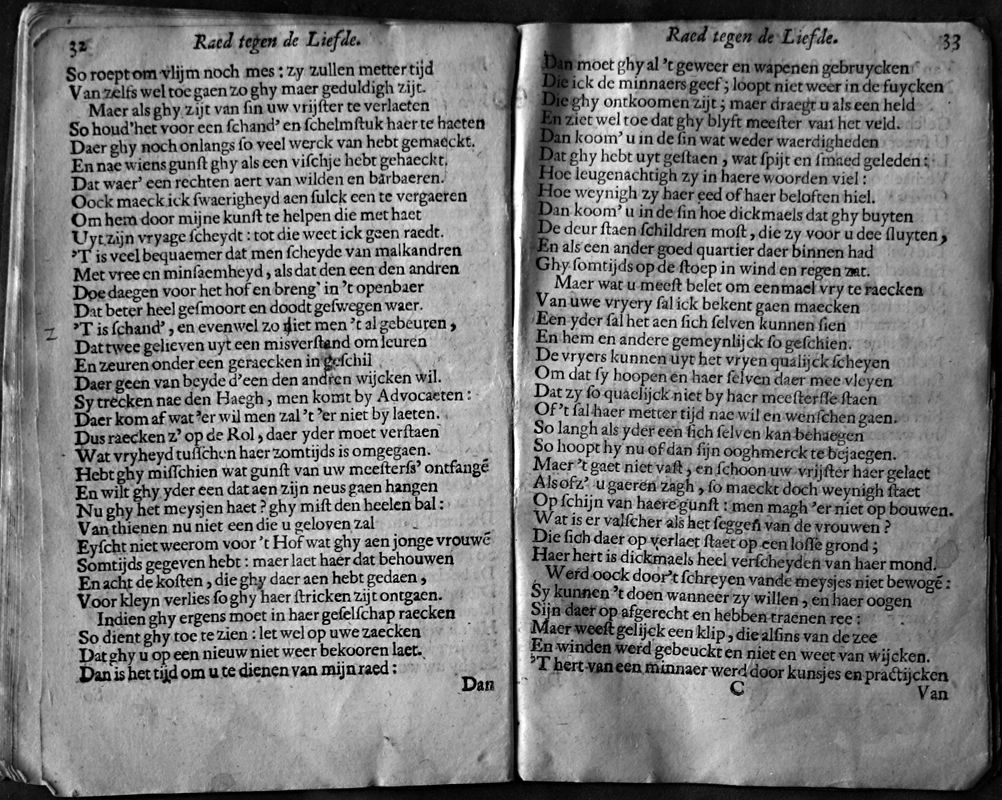 32
Raed tegen de Liefde.
So roept om vlijm noch mes : zy zullen metter tijd
Van zelfs wel toe gaen zo ghy maer geduldigh zijt.
Maer als ghy zijt van ſin uw vrijſter te verlaeten
So houd'het voor een ſchand' en ſchelmſtuk haer te haeten
Daer ghy noch onlangs ſo veel werck van hebt gemaeckt.
En nae wiens gunſt ghy als een viſchje hebt gehaeckt.
Dat waer' een rechten aert van wilden en barbaeren.
Oock maeck ick ſwaerigheyd aen ſulck een te vergaeren
Om hem door mijne kunſt te helpen die met haet
Uyt zijn vryage ſcheydt : tot die weet ick geen raedt.
'T is veel bequaemer dat men ſcheyde van malkandren
Met vree en minſaemheyd, als dat den een den andren
Doe daegen voor het hof en breng' in 't openbaer
Dat beter heel geſmoort en doodt geſwegen waer.
'T is ſchand', en evenwel zo ziet men 't al gebeuren,
Dat twee gelieven uyt een misverſtand om leuren
En zeuren onder een geraecken in geſchil
Daer geen van beyde d'een den andren wijcken wil.
Sy trecken nae den Haegh, men komt by Advocaeten :
Daer kom af wat 'er wil men zal 't 'er niet by laeten.
Dus raecken z' op de Rol, daer yder moet verſtaen
Wat vryheyd tuſſchen haer zomtijds is omgegaen.
Hebt ghy miſſchien wat gunſt van uw meeſterſs' ontfangē
En wilt ghy yder een dat aen zijn neus gaen hangen
Nu ghy het meysjen haet ? ghy miſt den heelen bal :
Van thienen nu niet een die u geloven zal
Eyſcht niet weerom voor 't Hof wat ghy aen jonge vrouwē
Somtijds gegeven hebt : maer laet haer dat behouwen
En acht de koſten, die ghy daer aen hebt gedaen,
Voor kleyn verlies ſo ghy haer ſtricken zijt ontgaen.
Indien ghy ergens moet in haer geſelſchap raecken
So dient ghy toe te zien : let wel op uwe zaecken
Dat ghy u op een nieuw niet weer bekooren laet.
Dan is het tijd om u te dienen van mijn raed :
Dan
2
Raed tegen de Liefde.
33
Dan moet ghy al 't geweer en wapenen gebruycken
Die ick de minnaers geef ; loopt niet weer in de fuycken
Die ghy ontkoomen zijt ; maer draegt u als een held
En ziet wel toe dat ghy blyft meeſter van het veld.
Dan koom' u in de ſin wat weder waerdigheden
Dat ghy hebt uyt geſtaen, wat ſpijt en ſmaed geleden :
Hoe leugenachtigh zy in haere woorden viel :
Hoe weynigh zy haer eed of haer beloften hiel.
Dan koom' u in de ſin hoe dickmaels dat ghy buyten
De deur ſtaen ſchildren moſt, die zy voor u dee ſluyten,
En als een ander goed quartier daer binnen had
Ghy ſomtijds op de ſtoep in wind en regen zat.
Maer wat u meeſt belet om eenmael vry te raecken
Van uwe vryery ſal ick bekent gaen maecken
Een yder ſal het aen ſich ſelven kunnen ſien
En hem en andere gemeynlijck ſo geſchien.
De vryers kunnen uyt het vryen qualijck ſcheyen
Om dat ſy hoopen en haer ſelven daer mee vleyen
Dat zy ſo quaelijck niet by haer meeſterſſe ſtaen
Of 't ſal haer metter tijd nae wil en wenſchen gaen.
So langh als yder een ſich ſelven kan behaegen
So hoopt hy nu of dan ſijn ooghmerck te bejaegen.
Maer 't gaet niet vaſt, en ſchoon uw vrijſter haer gelaet
Als ofz' u gaeren zagh, ſo maeckt doch weynigh ſtaet
Op ſchijn van haere gunſt : men magh 'er niet op bouwen.
Wat is er valſcher als het ſeggen van de vrouwen ?
Die ſich daer op verlaet ſtaet op een loſſe grond ;
Haer hert is dickmaels heel verſcheyden van haer mond.
Werd oock door't ſchreyen vande meysjes niet bewogē :
Sy kunnen 't doen wanneer zy willen, en haer oogen
Sijn daer op afgerecht en hebben traenen ree :
Maer weeſt gelijck een klip, die alſins van de zee
En winden werd gebeuckt en niet en weet van wijcken.
'T hert van een minnaer werd door kunsjes en practijcken
C
Van